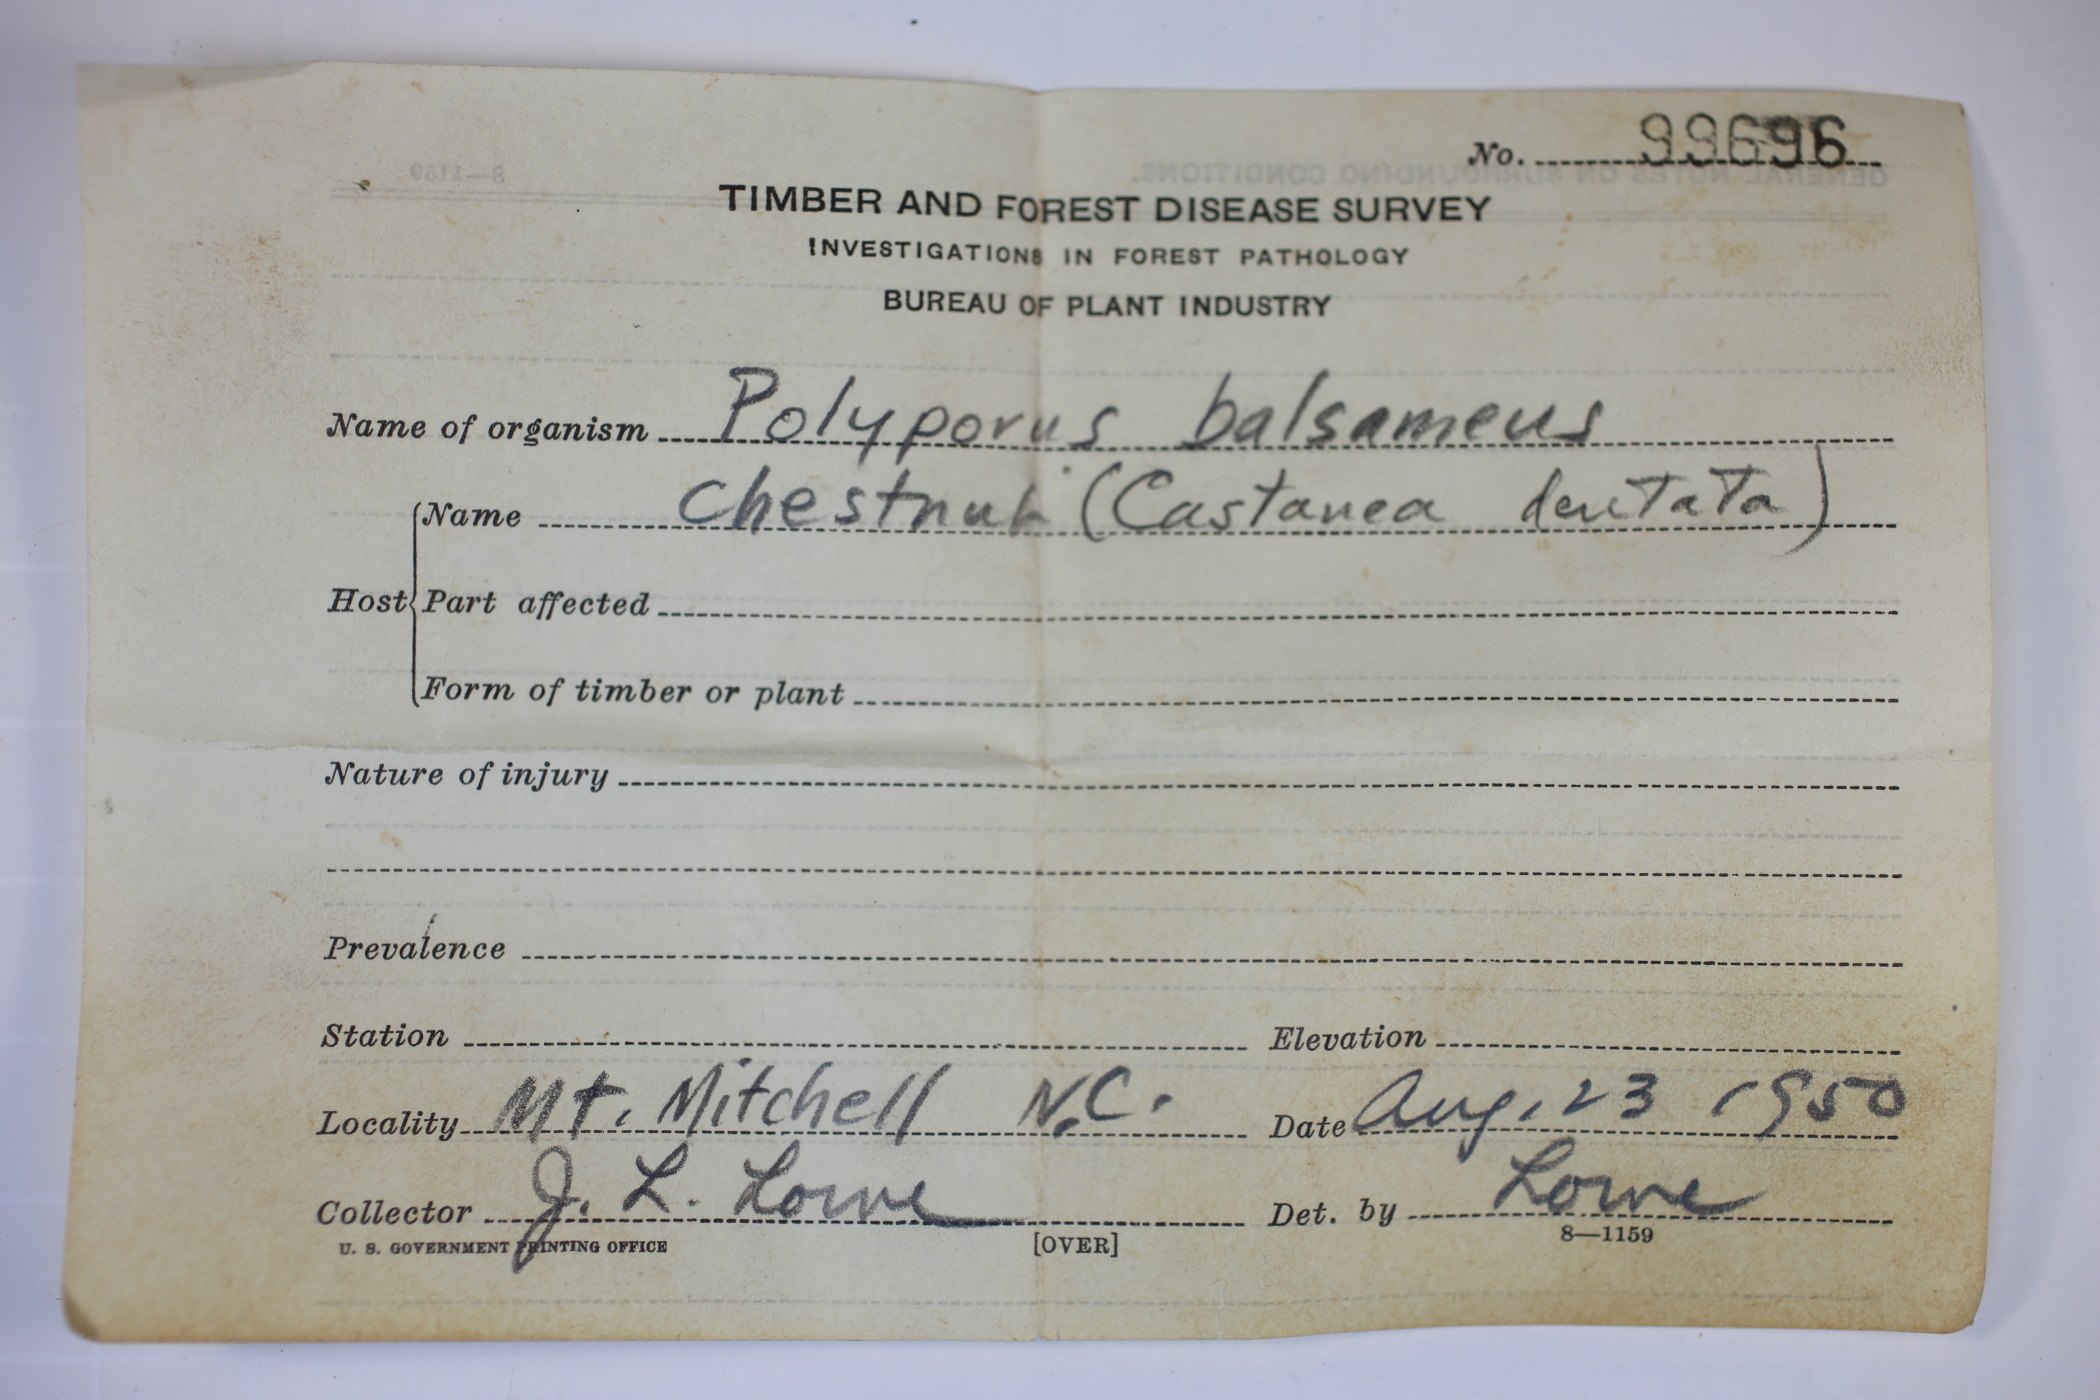 No. 99696
TIMBER AND FOREST DISEASE SURVEY
INVESTIGATIONS IN FOREST PATHOLOGY
BUREAU OF PLANT INDUSTRY
Name of organism Polyporus balsameus
Host
Name Chestnut (Castanea dentata)
Part affected
Form of timber or plant
Nature of injury
Prevalence
Station Elevation
Locality Mt. Mitchell N.C. Date Aug. 23 1950
Collector J. L. Lowe Det. by Lowe
U. S. GOVERNMENT PRINTING OFFICE [OVER] 8—1159
GENERAL NOTES ON SURROUNDING CONDITIONS.
8—1159